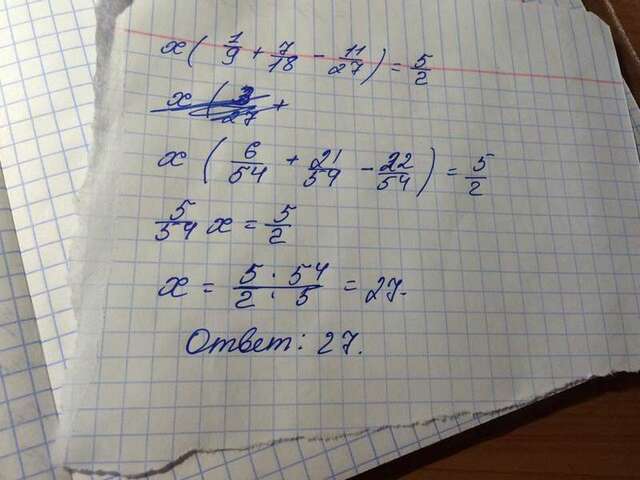 x( 1/9 + 7/18 - 11/27 ) = 5/2
x ( 6/54 + 21/54 - 22/54 ) = 5/2
5/54 x = 5/2
x = 5 · 54 / 2 · 5 = 27.
Ответ: 27.